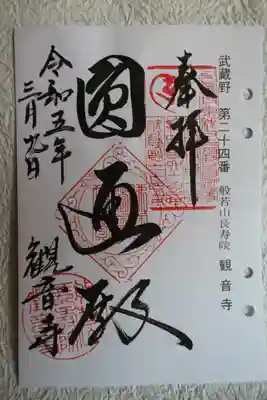 武蔵野 第二十四番 般若山長寿院 観音寺
奉拝
圓通殿
令和五年
三月九日
觀音寺